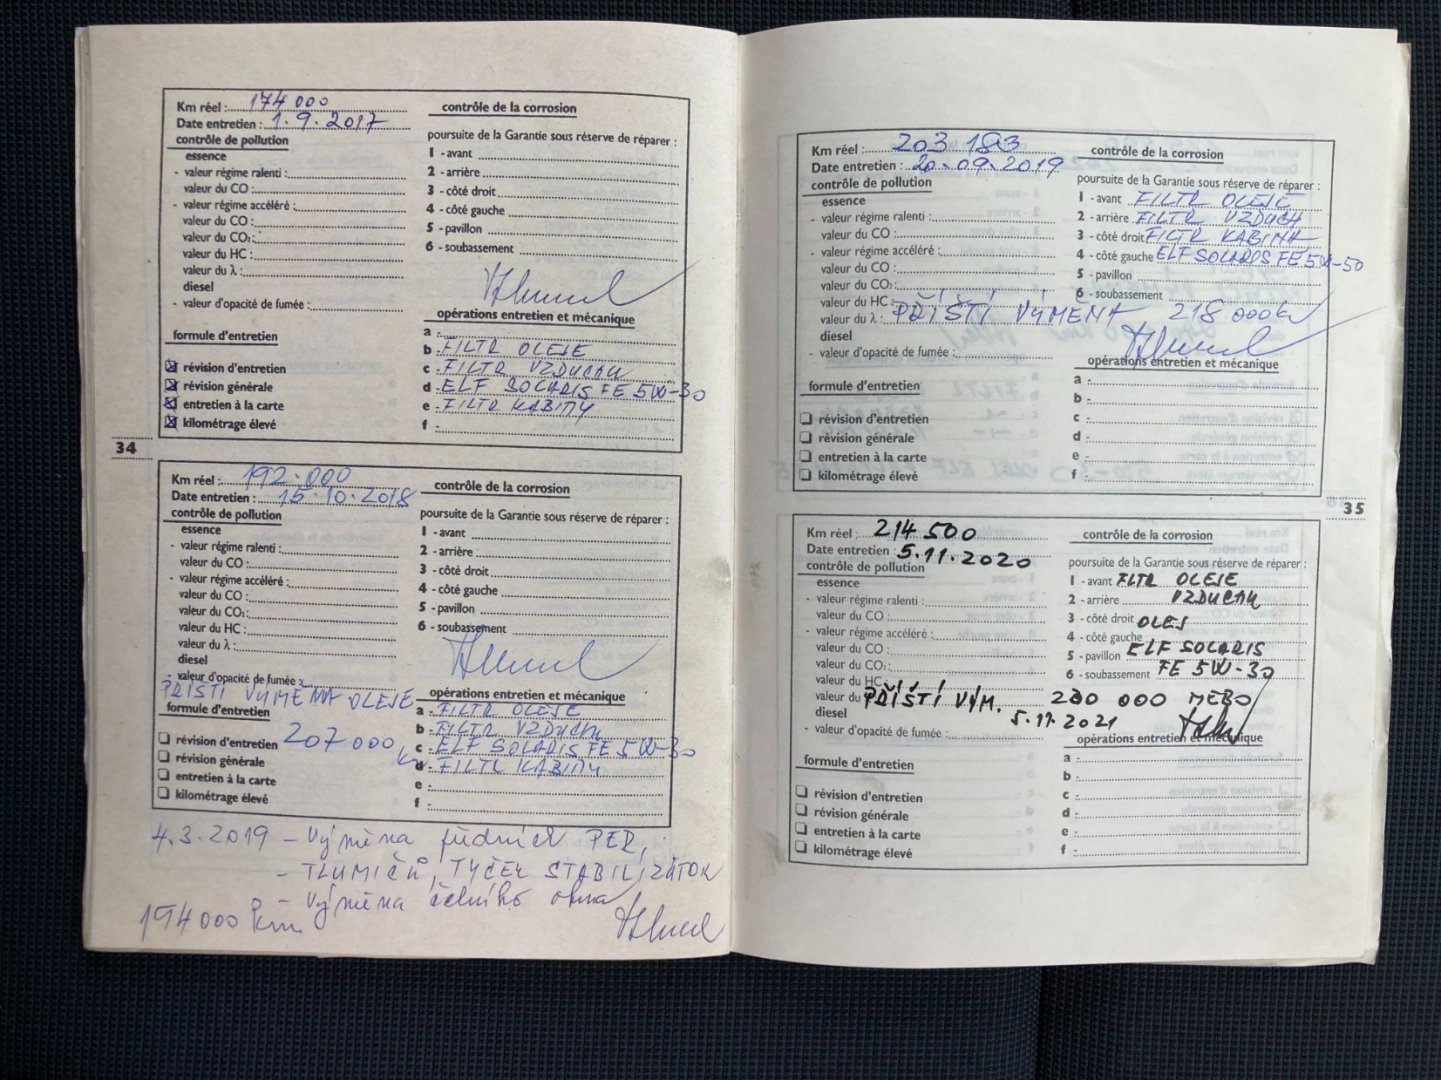 Km réel : 174 000
Date entretien : 1.9.2017
contrôle de pollution
essence
- valeur régime ralenti :
valeur du CO :
- valeur régime accéléré :
valeur du CO :
valeur du CO₂ :
valeur du HC :
valeur du λ :
diesel
- valeur d'opacité de fumée :
formule d'entretien
révision d'entretien
révision générale
entretien à la carte
kilométrage élevé
contrôle de la corrosion
poursuite de la Garantie sous réserve de réparer :
1 - avant
2 - arrière
3 - côté droit
4 - côté gauche
5 - pavillon
6 - soubassement
opérations entretien et mécanique
a -
b - FILTR OLEJE
c - FILTR VZDUCHU
d - ELF SOLARIS FE 5W-30
e - FILTR KABINY
f -
34
Km réel : 192.000
Date entretien : 15.10.2018
contrôle de pollution
essence
- valeur régime ralenti :
valeur du CO :
- valeur régime accéléré :
valeur du CO :
valeur du CO₂ :
valeur du HC :
valeur du λ :
diesel
- valeur d'opacité de fumée :
PŘÍŠTÍ VÝMĚNA OLEJE
formule d'entretien
207 000 km
révision d'entretien
révision générale
entretien à la carte
kilométrage élevé
contrôle de la corrosion
poursuite de la Garantie sous réserve de réparer :
1 - avant
2 - arrière
3 - côté droit
4 - côté gauche
5 - pavillon
6 - soubassement
opérations entretien et mécanique
a - FILTR OLEJE
b - FILTR VZDUCHU
c - ELF SOLARIS FE 5W-30
d - FILTR KABINY
e -
f -
4.3.2019 - Výměna předních PER,
- TLUMIČŮ, TYČEK STABILIZÁTOR
- Výměna čelního okna
194000 km
Km réel : 203 183
Date entretien : 20.09.2019
contrôle de pollution
essence
- valeur régime ralenti :
valeur du CO :
- valeur régime accéléré :
valeur du CO :
valeur du CO₂ :
valeur du HC :
valeur du λ : PŘÍŠTÍ VÝMĚNA 218 000 km
diesel
- valeur d'opacité de fumée :
formule d'entretien
révision d'entretien
révision générale
entretien à la carte
kilométrage élevé
contrôle de la corrosion
poursuite de la Garantie sous réserve de réparer :
1 - avant FILTR OLEJE
2 - arrière FILTR VZDUCH
3 - côté droit FILTR KABINA
4 - côté gauche ELF SOLARIS FE 5W-50
5 - pavillon
6 - soubassement
opérations entretien et mécanique
a -
b -
c -
d -
e -
f -
35
Km réel : 214 500
Date entretien : 5.11.2020
contrôle de pollution
essence
- valeur régime ralenti :
valeur du CO :
- valeur régime accéléré :
valeur du CO :
valeur du CO₂ :
valeur du HC :
valeur du PŘÍŠTÍ VÝM. 230 000 NEBO
diesel 5.11.2021
- valeur d'opacité de fumée :
formule d'entretien
révision d'entretien
révision générale
entretien à la carte
kilométrage élevé
contrôle de la corrosion
poursuite de la Garantie sous réserve de réparer :
1 - avant FLTR OLEJE
2 - arrière VZDUCHU
3 - côté droit OLEJ
4 - côté gauche
5 - pavillon ELF SOLARIS
6 - soubassement FE 5W-30
opérations entretien et mécanique
a -
b -
c -
d -
e -
f -